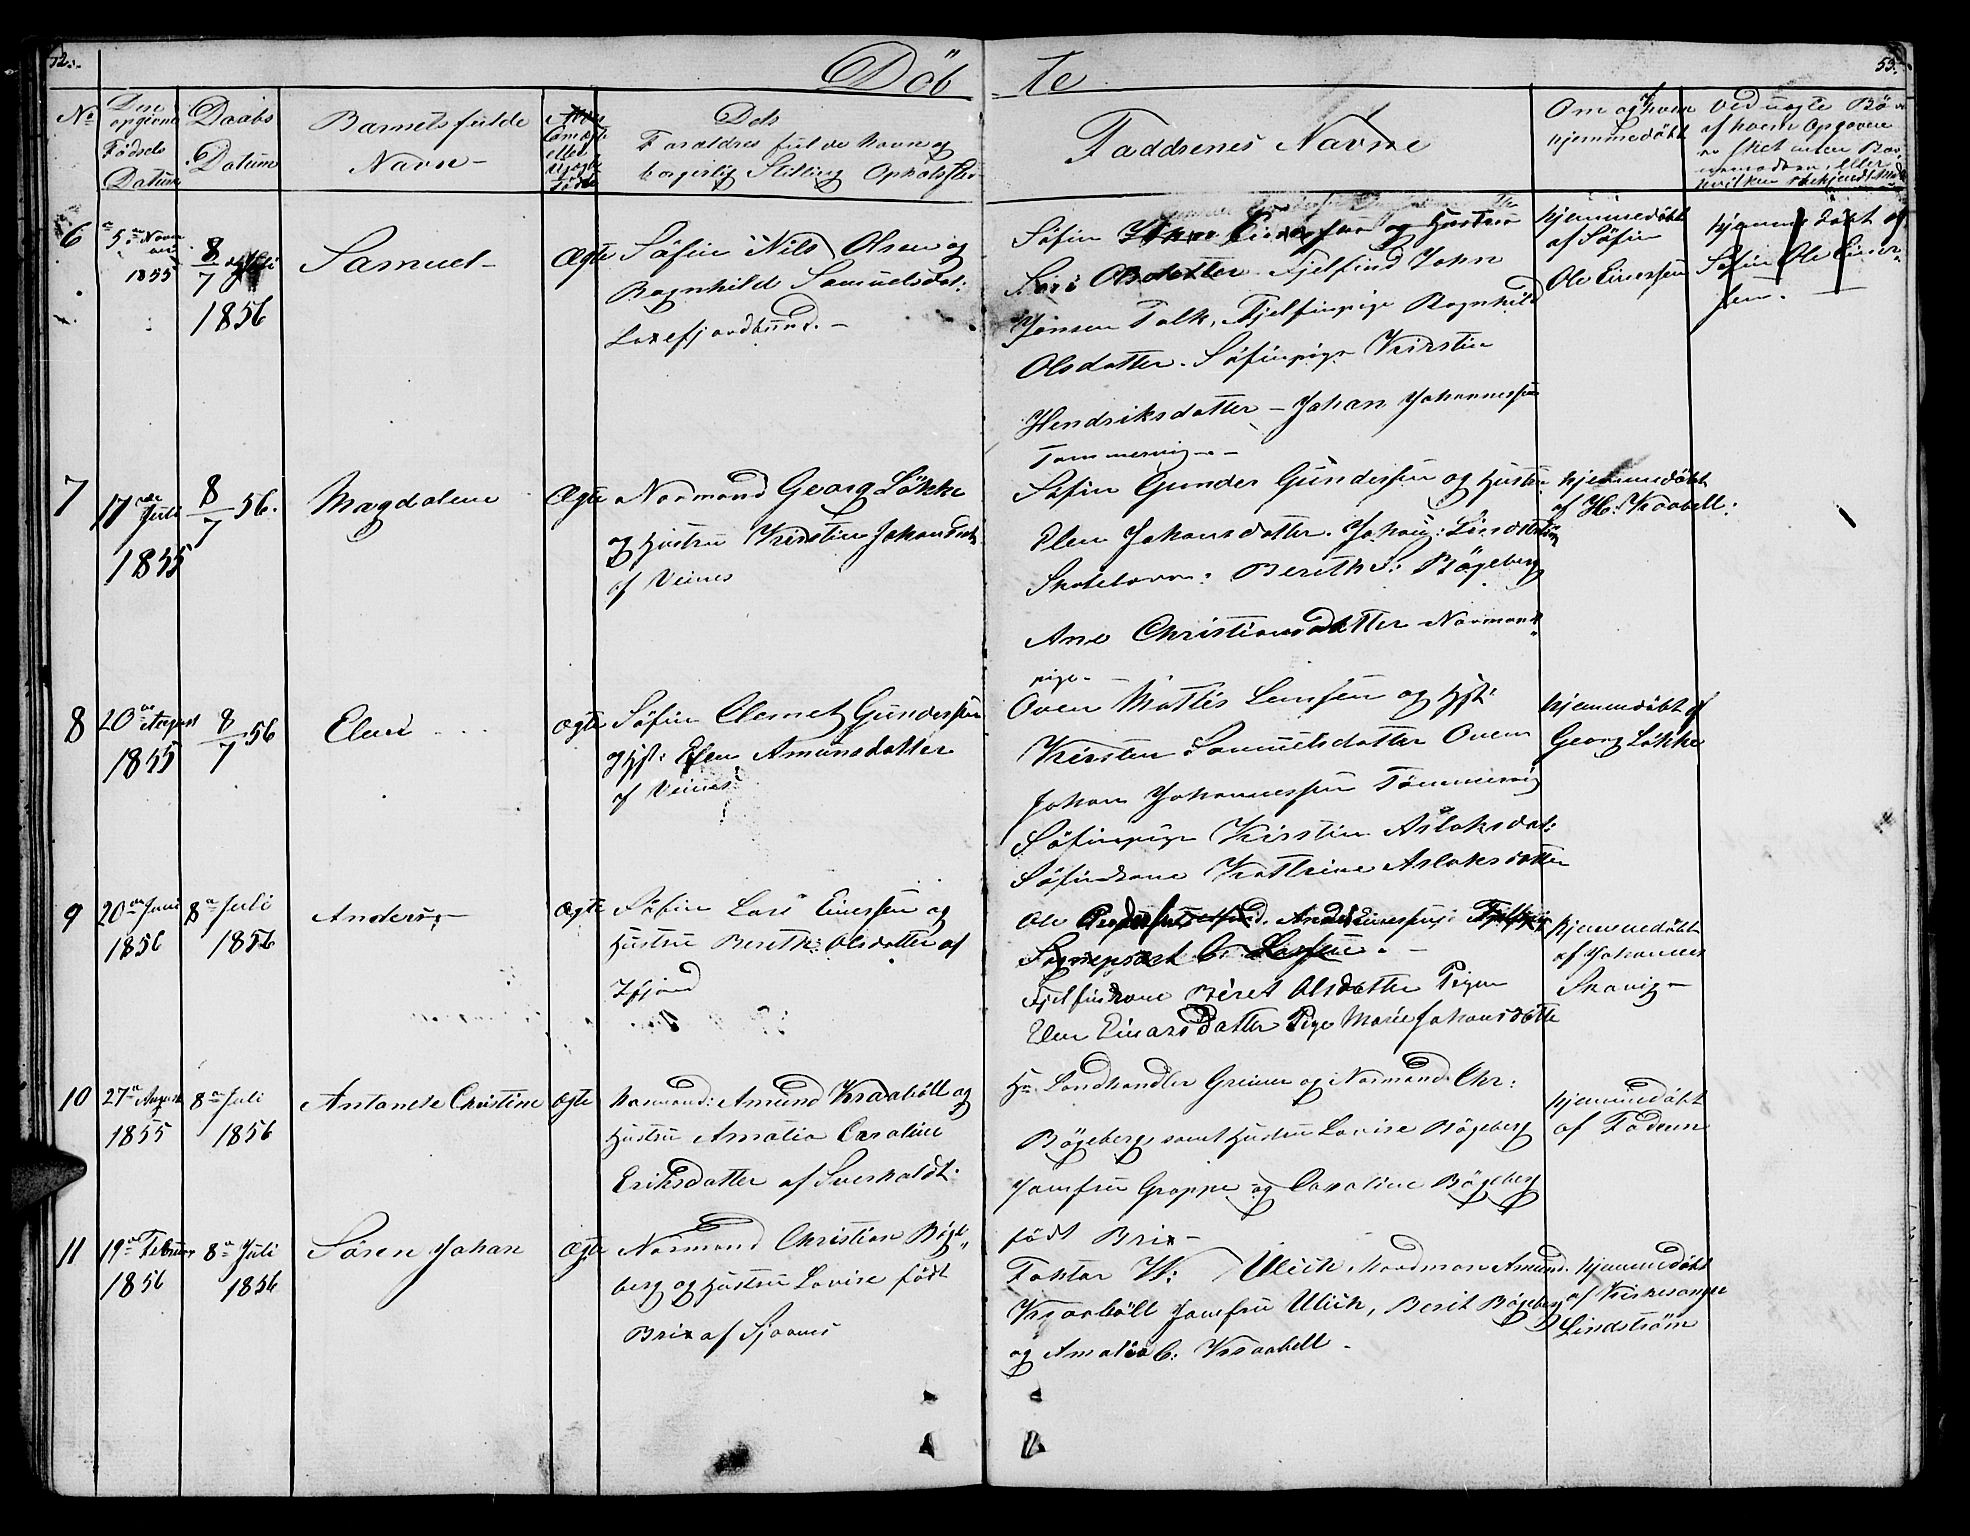 52.
Döb te
53.
No
Den opgivne Fødsels Datum
Daabs Datum
Barnets fulde Navn
Om ægte eller Uægte født
Dets
Foraldres fulde Navn og
borgerlig Stilling Opholdssted
Faddrenes Navne
Om og af hvem
hjemmedöbt
6
5te Novem
1855
8/7 Juli
1856
Samuel
Ægte
Söfin Nils Olsen og
Ragnhild Samuelsdat:
Laxefjordbund.
Söfin Einersen og Hustru
Siri Olsdatter Fjelfind John
Jonsen Talk, Fjelfinpige Ragnhild
Olsdatter. Söfinpige Kirstin
Hendriksdatter - Johan Johannessen
Tømmervig
hjemmedöbt
af Söfin
Ole Einersen
hjemmedöbt af
Söfin Ole Einer-
sen.
7
17de Juli
1855
8/7 56.
Magdalene
Ægte
Normand Georg Løkke
og Hustru Kirstin Johansdat.
af Veines
Söfin Gunder Gundersen og Hustru
Elen Johansdatter. Johan: Lindström
Berith S: Bögeberg
Ane Christiansdatter Normands
pige
hjemmedöbt
af H: Kraabell:
8
20de August
1855
8/7 56
Elen
Ægte
Söfin Clemet Gundersen
og Hst: Elen Amundsdatter
af Veines
Oven Mattis Lensen og Hst:
Kirsten Samuelsdatter Oven
Johan Johannessen Tömmervig
Söfinpige Kirstin Aslaksdat:
Söfinkone Kathrine Aslaksdatter
hjemmedöbt af
Georg Løkke
9
20de Juni
1856
8de Juli
1856
Anders
Ægte
Söfin Lars Einersen og
Hustru Berith: Olsdatter af
Ifjord
Ole
Fjelfinkone Beret Olsdatter Pigen
Elen Einarsdatter Pige Marie Johansdatter
hjemmedöbt
af Johannes
Skavig
10
27de August
1855
8de Juli
1856
Antonete Christine
Ægte
Normand: Amund Kraaböll og
Hustru Amalia Caroline
Eriksdatter af Sverholdt.
Hr. Landhandler Greiner og Normand Chr:
Bögeberg samt Hustru Lovise Bögeberg
Jomfru Groppe og Caroline Bögeberg
födt Brix
hjemmedöbt
af Faderen
11
19de Februar
1856
8de Juli
1856
Sören Johan
Ægte
Normand Christian Böge-
berg og Hustru Lovise födt
Brix af Sjaanes
Faktor W: Ulich Nordmand Amund
Kraaböll Jomfru Ulich, Berit Bögeberg
og Amalia C: Kraabell
hjemmedöbt
af Kirkesanger
Lindström